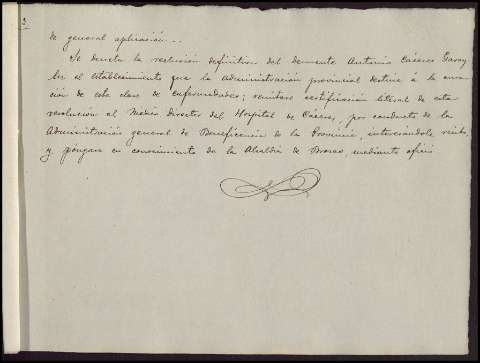 de general aplicación...
Se decreta la reclusión definitiva del demente Antonio Cáceres Garay
en el establecimiento que la administración provincial destine á la cura-
ción de esta clase de enfermedades; remítase certificación literal de esta
resolución al Médico Director del Hospital de Cáceres, por conducto de la
Administración general de Beneficencia de la Provincia, interesándole recibo,
y póngase en conocimiento de la Alcaldía de Brozas, mediante oficio